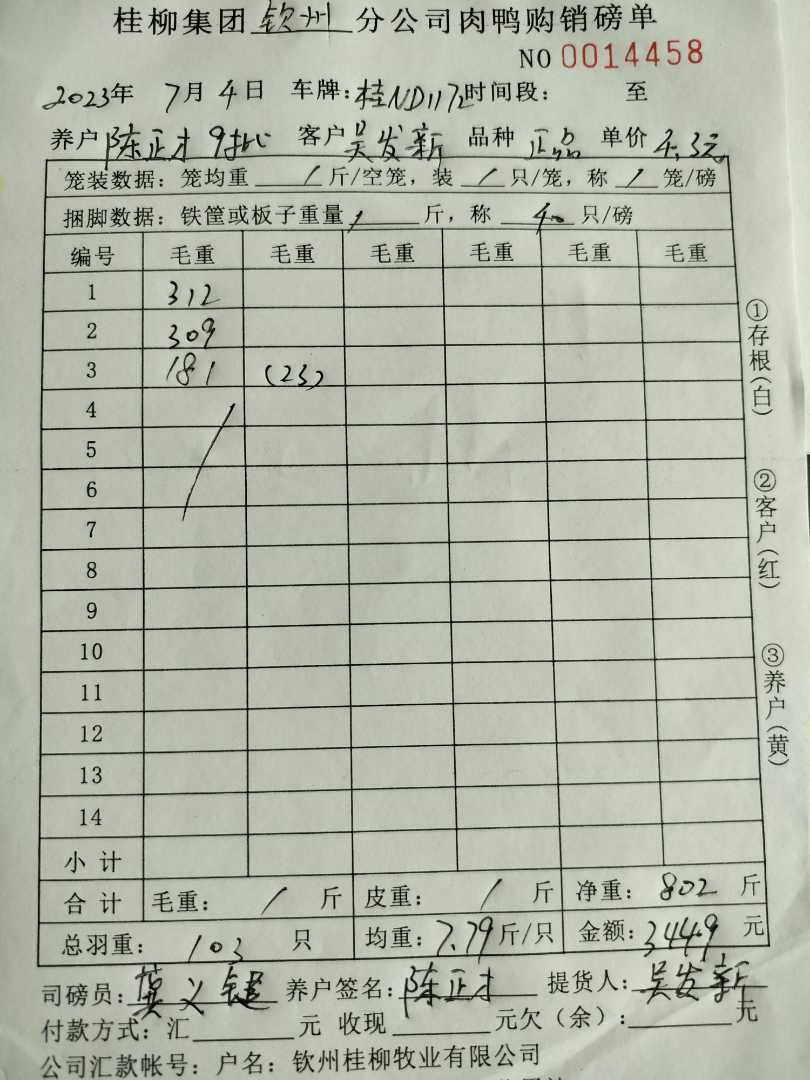 桂柳集团 钦州 分公司肉鸭购销磅单
NO 0014458
2023年 7月 4日 车牌:桂ND1172 时间段: 至
养户 陈正才 9批 客户 吴发新 品种 正品 单价 4.3元
笼装数据: 笼均重 / 斤/空笼, 装 / 只/笼, 称 / 笼/磅
捆脚数据: 铁筐或板子重量 / 斤, 称 40 只/磅
编号 毛重 毛重 毛重 毛重 毛重 毛重
1 312
2 309
3 181 (23)
4
5
6
7
8
9
10
11
12
13
14
小计
合计 毛重: / 斤 皮重: / 斤 净重: 802 斤
总羽重: 103 只 均重: 7.79 斤/只 金额: 3449 元
司磅员: 莫义 养户签名: 陈正才 提货人: 吴发新
付款方式: 汇 元 收现 元欠(余): 元
公司汇款帐号: 户名: 钦州桂柳牧业有限公司
①存根(白)
②客户(红)
③养户(黄)